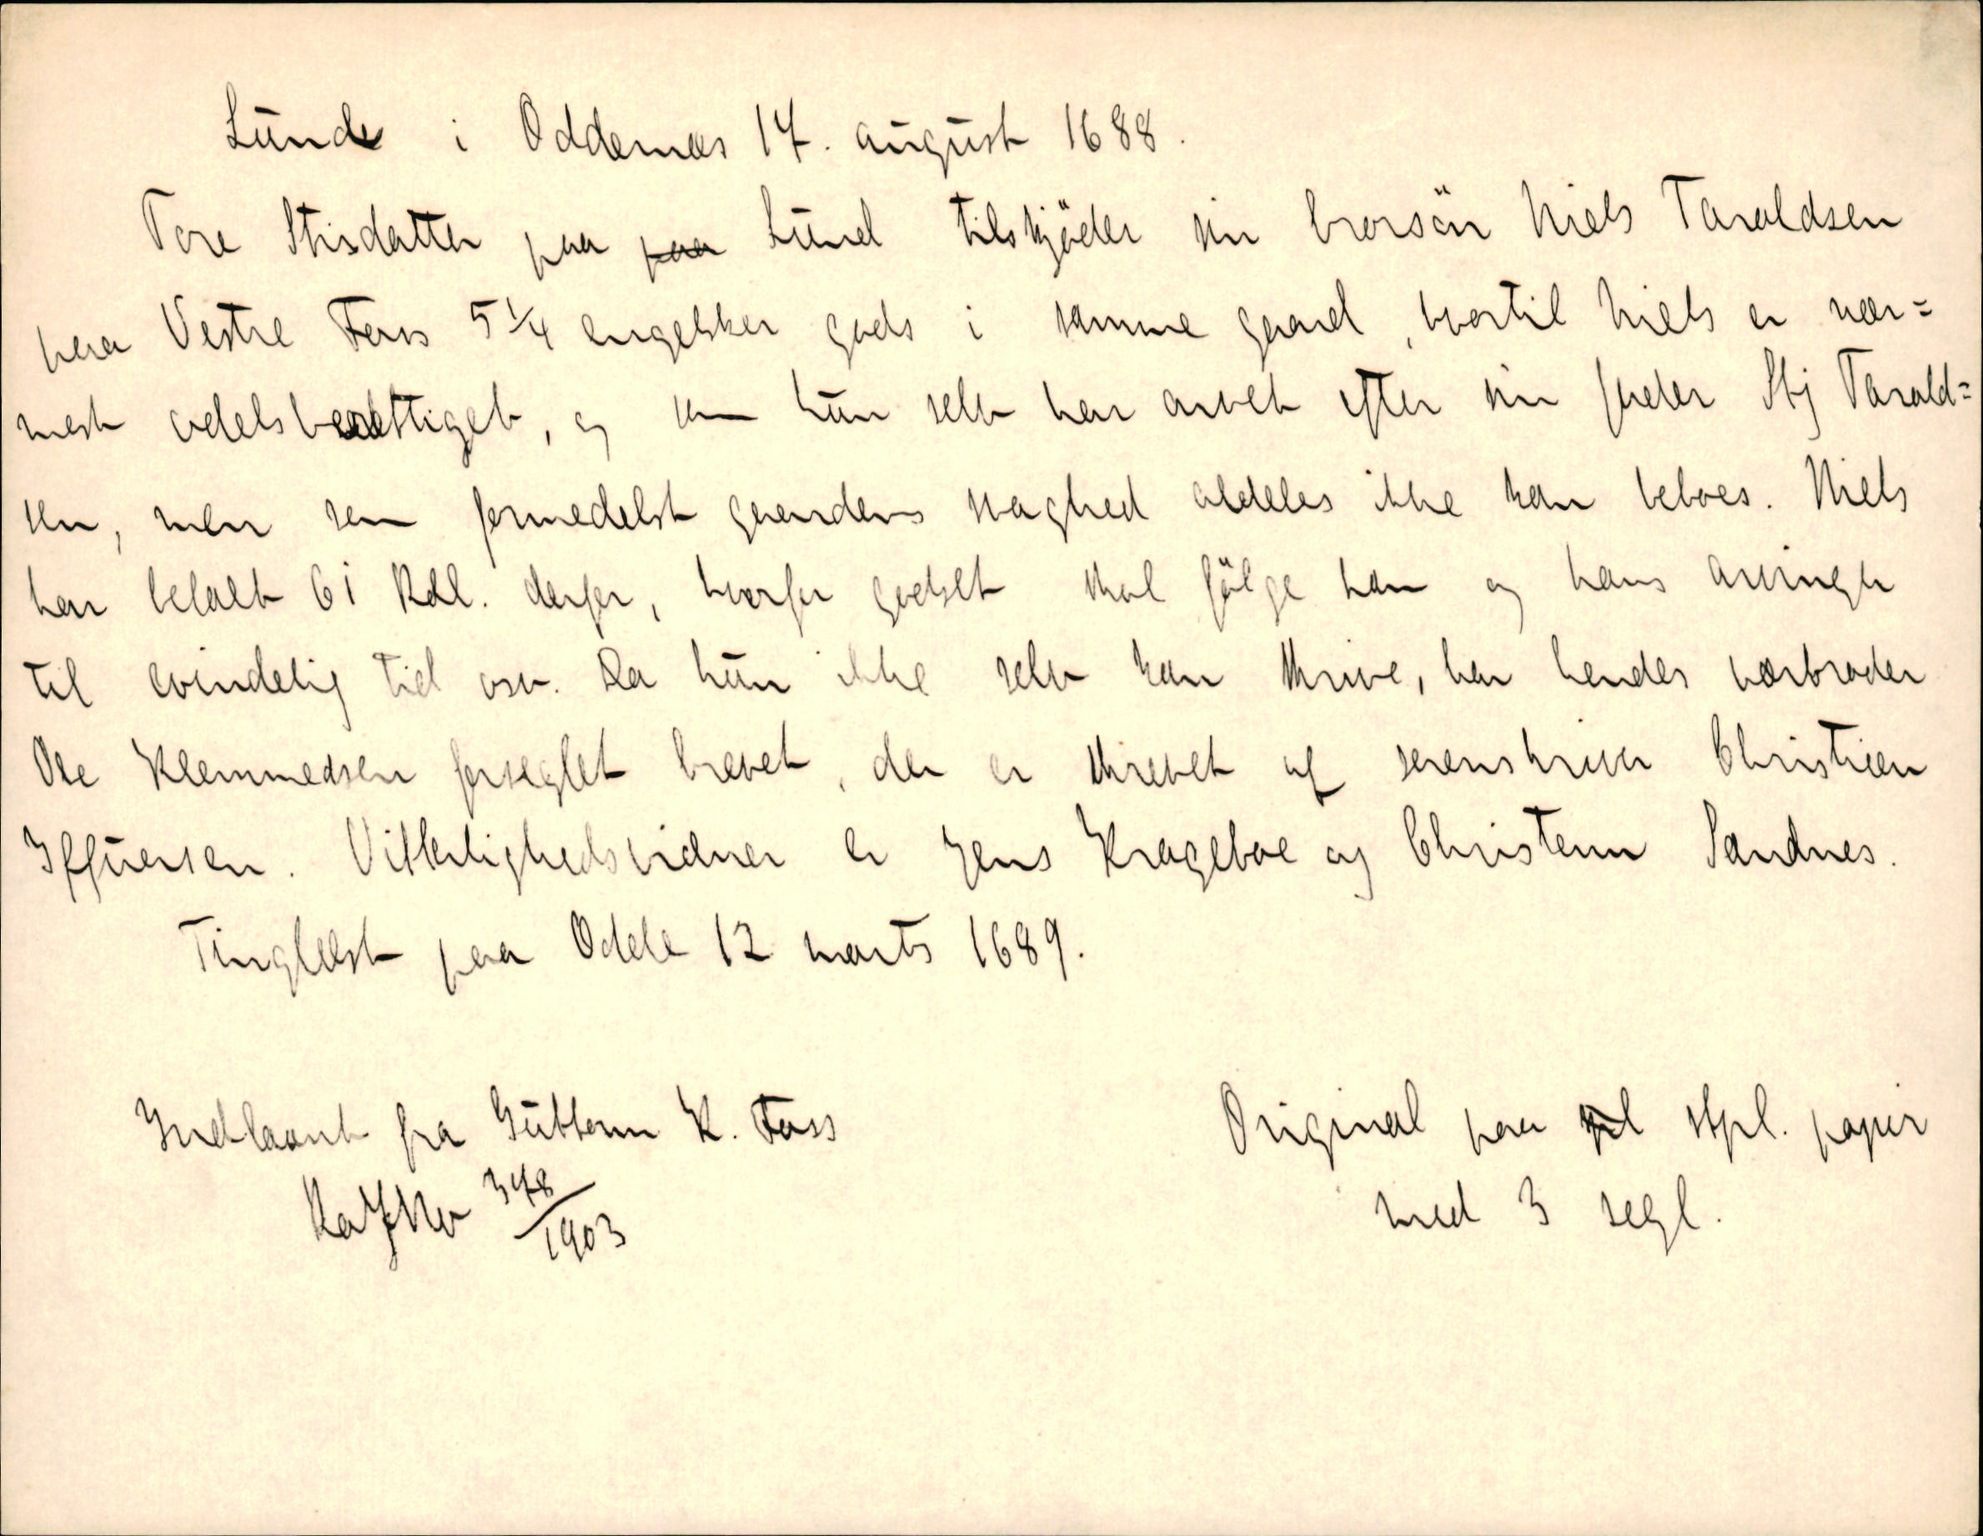 Lunde i Oddernes 17. august 1688.
Tore Stisdatter paa paa Lund tilskjöder sin brorsön Niels Taraldsen
paa Vestre Foss 5 1/4 engelsker gods i samme gaard, hvortil Niels er nær=
mest odelsberettiget, og som hun selv har arvet efter sin fader Stj Tarald=
sen, men som formedelst gaardens svaghed aldeles ikke kan beboes. Niels
har betalt 61 Rdl. derfor, hvorfor godset skal fölge ham og hans arvinger
til evindelig tid osv. Da hun ikke selv kan skrive, har hendes værbroder
Ole Klemmedsen forseglet brevet, der er skrevet af sorenskriver Christian
Iffuersen. Vitterlighedsvidner er Jens Krageboe og Christenn Sandnes.
Tinglæst paa Odde 12 marts 1689.
Indlaant fra Guttorm K. Foss
348/1903
Original paa stpl. papir
med 3 segl.